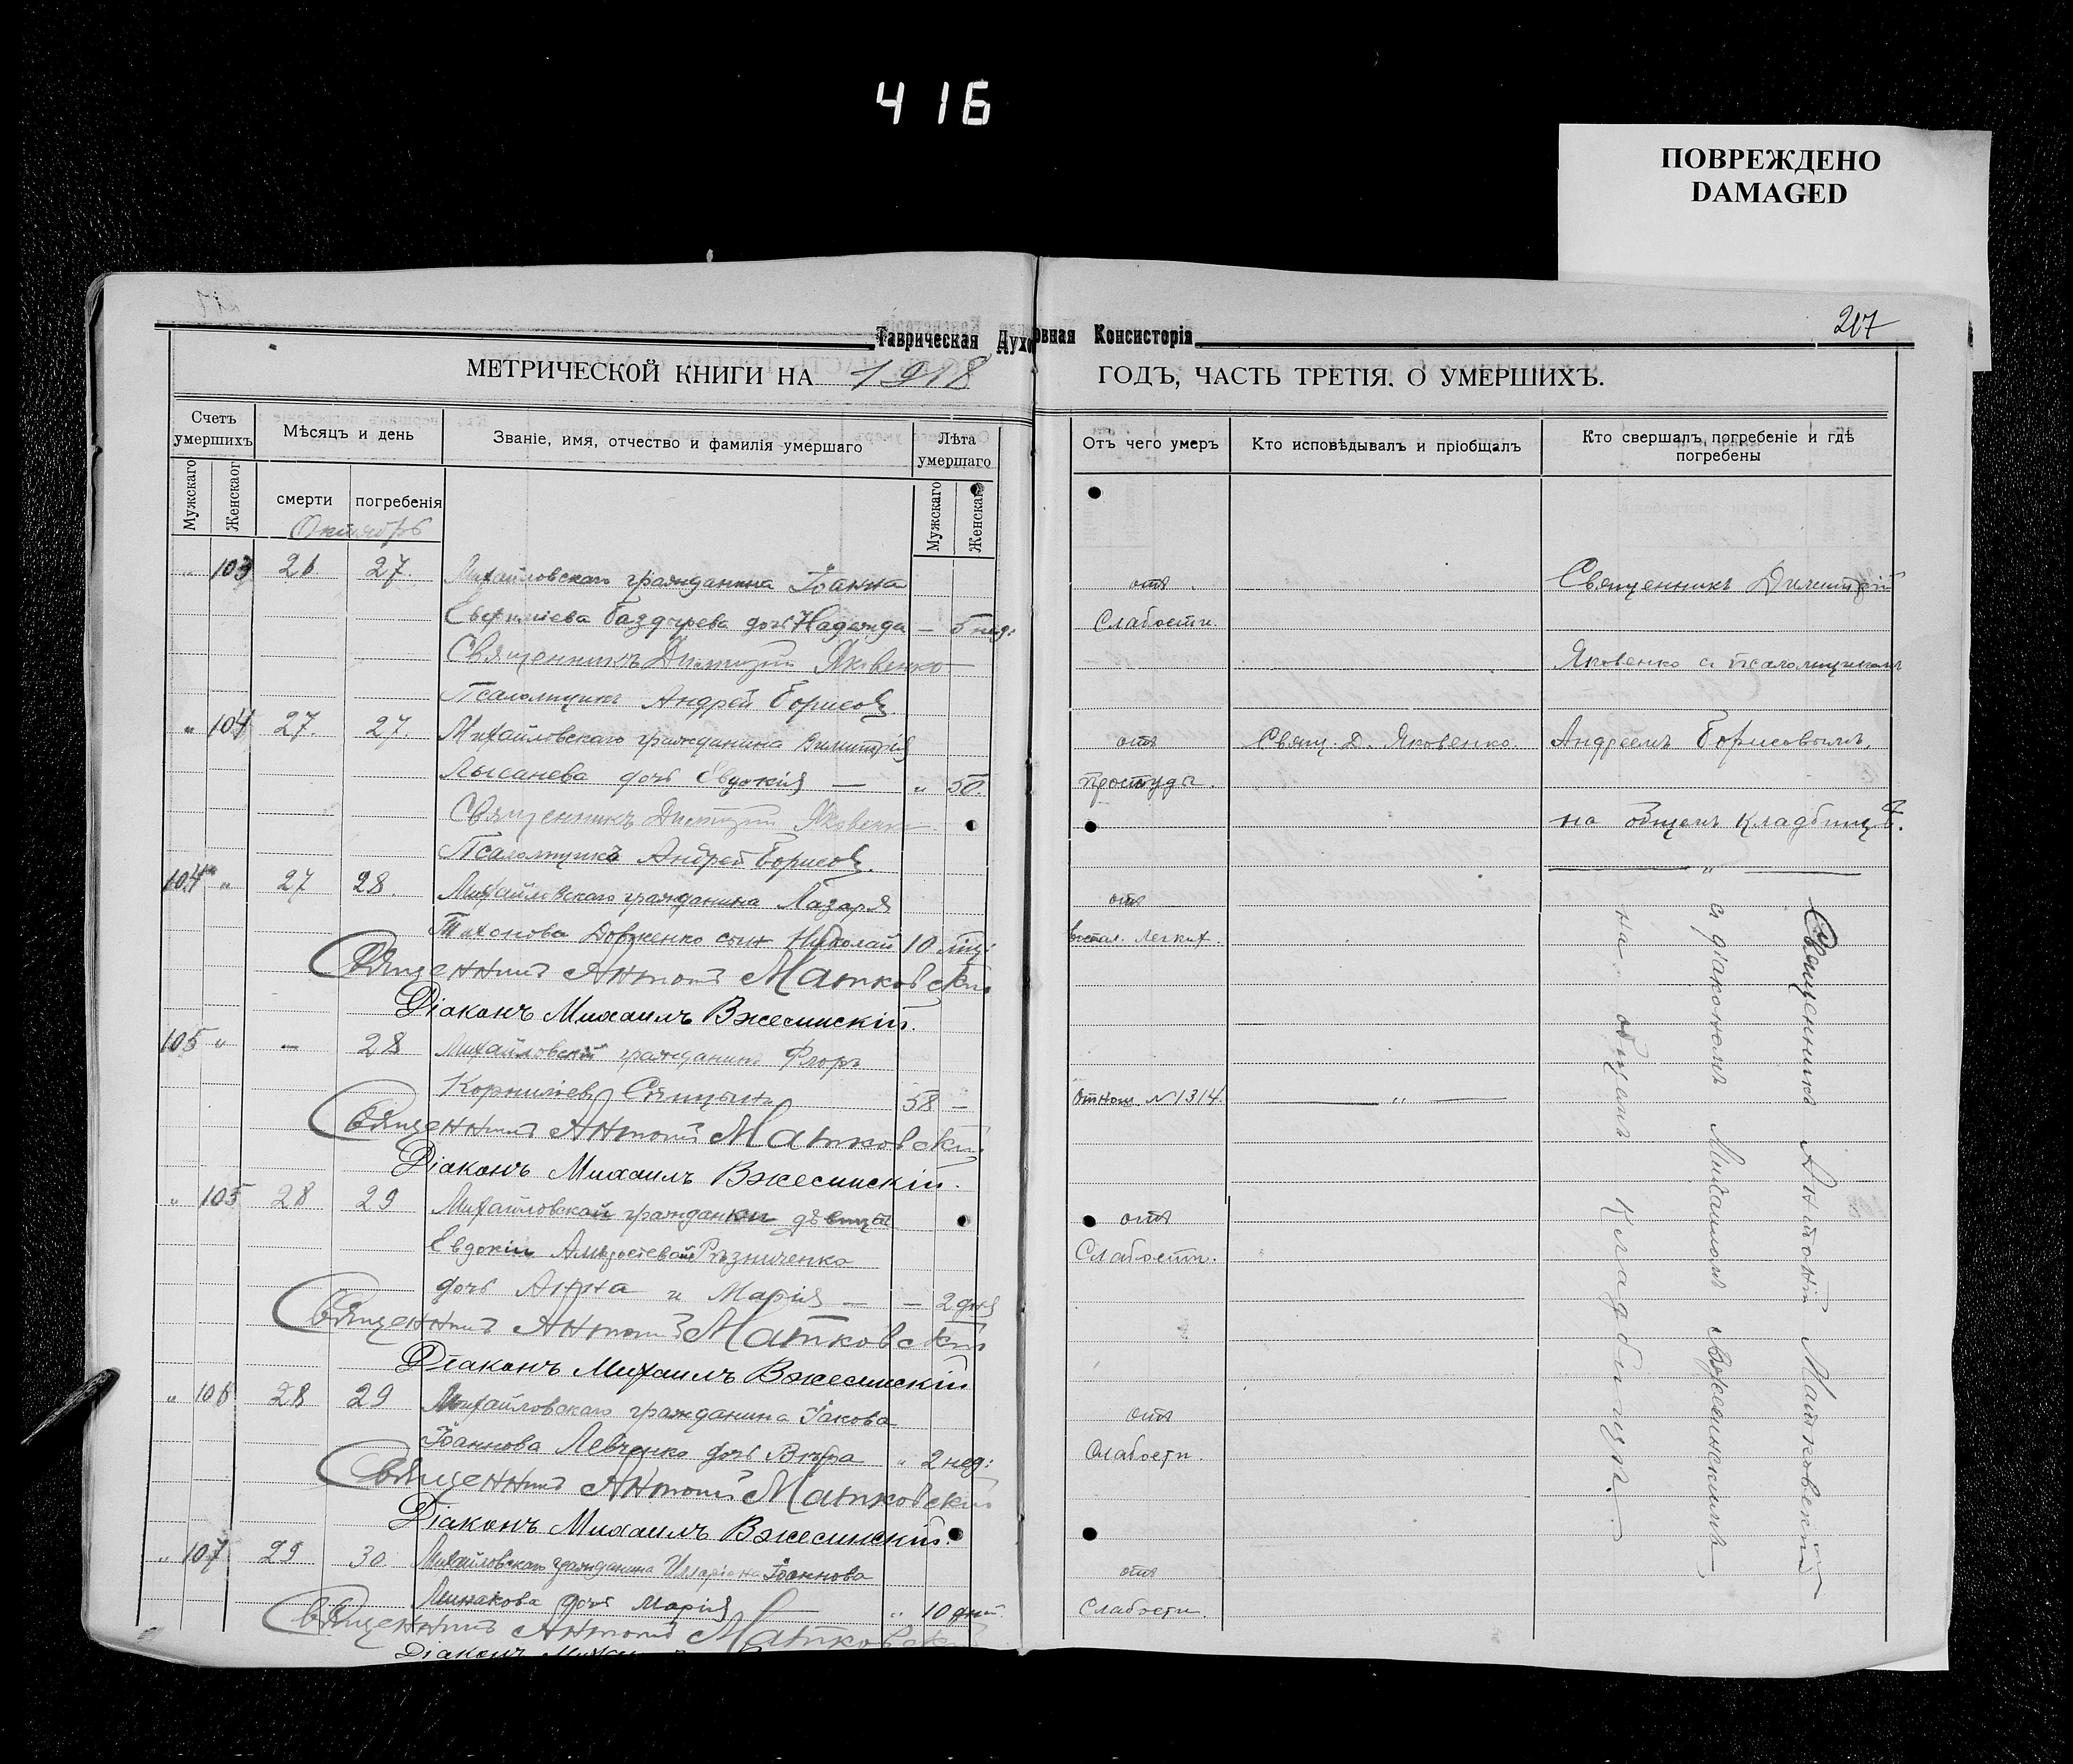 416
ПОВРЕЖДЕНО
DAMAGED
217
Таврическая Духовная Консисторія
МЕТРИЧЕСКОЙ КНИГИ НА 1918 ГОДЪ, ЧАСТЬ ТРЕТІЯ. О УМЕРШИХЪ.
Счетъ умершихъ
Мѣсяцъ и день
Званіе, имя, отчество и фамилія умершаго
Лѣта умершаго
Отъ чего умеръ
Кто исповѣдывалъ и пріобщалъ
Кто свершалъ погребеніе и гдѣ погребены
Мужскаго
Женскаог
смерти
погребенія
Мужскаго
Женскаго
Октябрь
" 103 26 27. Михайловскаго гражданина Іоанна отъ Священникъ Димитрій
дочь Надежда — 5 нед: Слабости.
Священникъ Димитрій Яковенко Яковенко съ псаломщикомъ
Псаломщикъ Андрей Борисовъ
" 104 27. 27. Михайловскаго гражданина Димитрія отъ Свящ. Д. Яковенко. Андреемъ Борисовымъ,
дочь Евдокія — " 50. простуды.
Священникъ Димитрій Яковенко на общемъ кладбищѣ.
Псаломщикъ Андрей Борисовъ. — " —
104 " 27 28. Михайловскаго гражданина Лазаря отъ
Тихонова Довженко сынъ Николай 10 мѣц: воспал. легких.
Священникъ Антоній Матковскій
Діаконъ Михаилъ Вжесинскій.
105 " — 28 Михайловскій гражданинъ Флоръ
Корниліевъ 58 — отнош. №1314. — " —
Священникъ Антоній Матковскій.
Діаконъ Михаилъ Вжесинскій.
" 105 28 29 Михайловской гражданки дѣвицы отъ
Евдокіи Рѣзниченко Слабости.
дочь Анна и Марія — — 2 дня
Священникъ Антоній Матковскій
Діаконъ Михаилъ Вжесинскій
" 106 28 29 Михайловскаго гражданина Іакова отъ
Іоаннова Левченко дочь Вѣра " 2 нед: Слабости.
Священникъ Антоній Матковскій
Діаконъ Михаилъ Вжесинскій.
" 107 29 30 Михайловскаго гражданина Иларіона Іоаннова отъ
Минакова дочь Марія — " 10 дней. Слабости.
Священникъ Антоній Матковскій
Діаконъ
Священникъ Антоній Матковскій
съ діакономъ Михаиломъ Вжесинскимъ
на общемъ кладбищѣ.